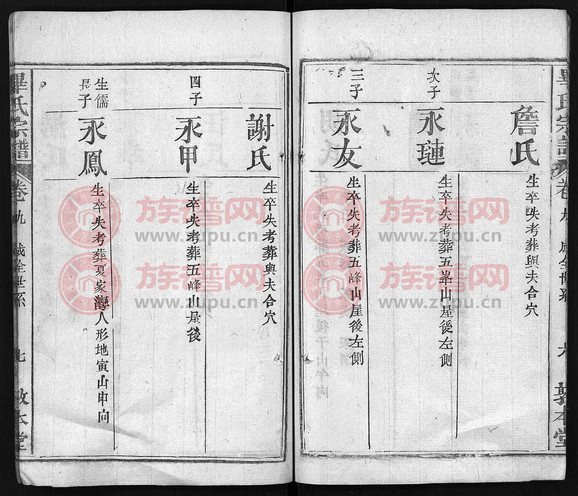 畢氏宗譜
卷九
六
敦本堂
詹氏
生卒失考葬與夫合穴
次子
永璉
生卒失考葬五峯山屋後左側
三子
永友
生卒失考葬五峰山屋後左側
謝氏
生卒失考葬與夫合穴
四子
永甲
生卒失考葬五峰山屋後
生儒
長子
永鳳
生卒失考葬夏家灣人形地寅山申向
畢氏宗譜
卷九
七
敦本堂
族谱网
www.zupu.cn
族谱网
www.zupu.cn
族谱网
www.zupu.cn
族谱网
www.zupu.cn